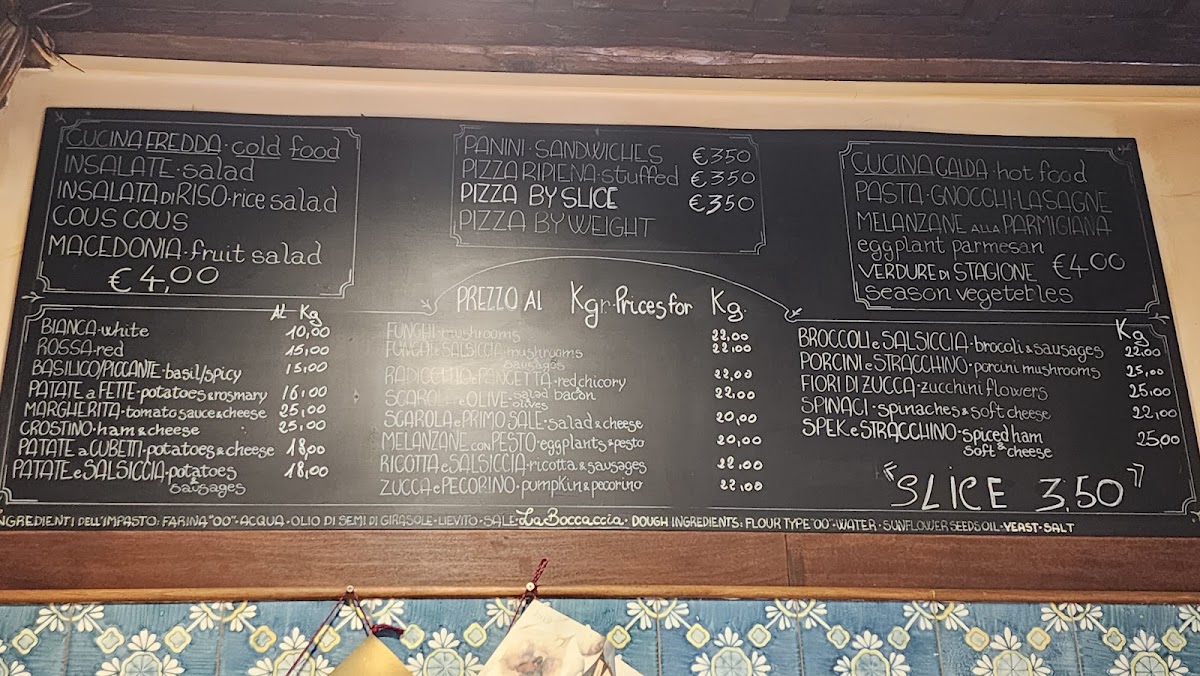 CUCINA FREDDA · cold food
INSALATE · salad
INSALATA di RISO · rice salad
COUS COUS
MACEDONIA · fruit salad
€ 4,00
PANINI · SANDWICHES €350
PIZZA RIPIENA · stuffed €350
PIZZA BY SLICE €350
PIZZA BY WEIGHT
CUCINA CALDA · hot food
PASTA · GNOCCHI · LASAGNE
MELANZANE ALLA PARMIGIANA
eggplant parmesan
VERDURE DI STAGIONE €400
season vegetebles
PREZZO AL Kgr · Prices for Kg.
AL Kg
BIANCA · white 10,00
ROSSA · red 15,00
BASILICO/PICCANTE · basil/spicy 15,00
PATATE a FETTE · potatoes & rosmary 16,00
MARGHERITA · tomato sauce & cheese 25,00
CROSTINO · ham & cheese 25,00
PATATE a CUBETTI · potatoes & cheese 18,00
PATATE e SALSICCIA · potatoes 18,00
& sausages
FUNGHI · mushrooms 22,00
FUNGHI e SALSICCIA · mushrooms 22,00
sausages
RADICCHIO e PANCETTA · red chicory 22,00
bacon
SCAROLA e OLIVE · salad 22,00
olives
SCAROLA e PRIMO SALE · salad & cheese 20,00
MELANZANE CON PESTO · eggplants & pesto 20,00
RICOTTA e SALSICCIA · ricotta & sausages 22,00
ZUCCA e PECORINO · pumpkin & pecorino 22,00
Kg
BROCCOLI e SALSICCIA · brocoli & sausages 22,00
PORCINI e STRACCHINO · porcini mushrooms 25,00
FIORI DI ZUCCA · zucchini flowers 25,00
SPINACI · spinaches & soft cheese 22,00
SPEK e STRACCHINO · spiced ham 25,00
soft & cheese
"SLICE 3,50"
INGREDIENTI DELL'IMPASTO: FARINA "00" · ACQUA · OLIO DI SEMI DI GIRASOLE · LIEVITO · SALE · La Boccaccia · DOUGH INGREDIENTS: FLOUR TYPE "00" · WATER · SUNFLOWER SEEDS OIL · YEAST · SALT